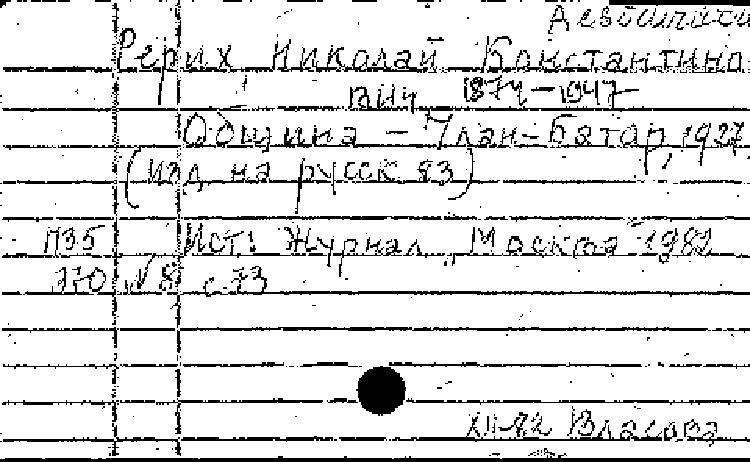 Рерих, Николай Константино-
вич 1874-1947
Община - Улан-Батар, 1927
(изд. на русск. яз)
П35 Ист: Журнал „Москва" 1982
770 №8 с.73
XII-82 Власова